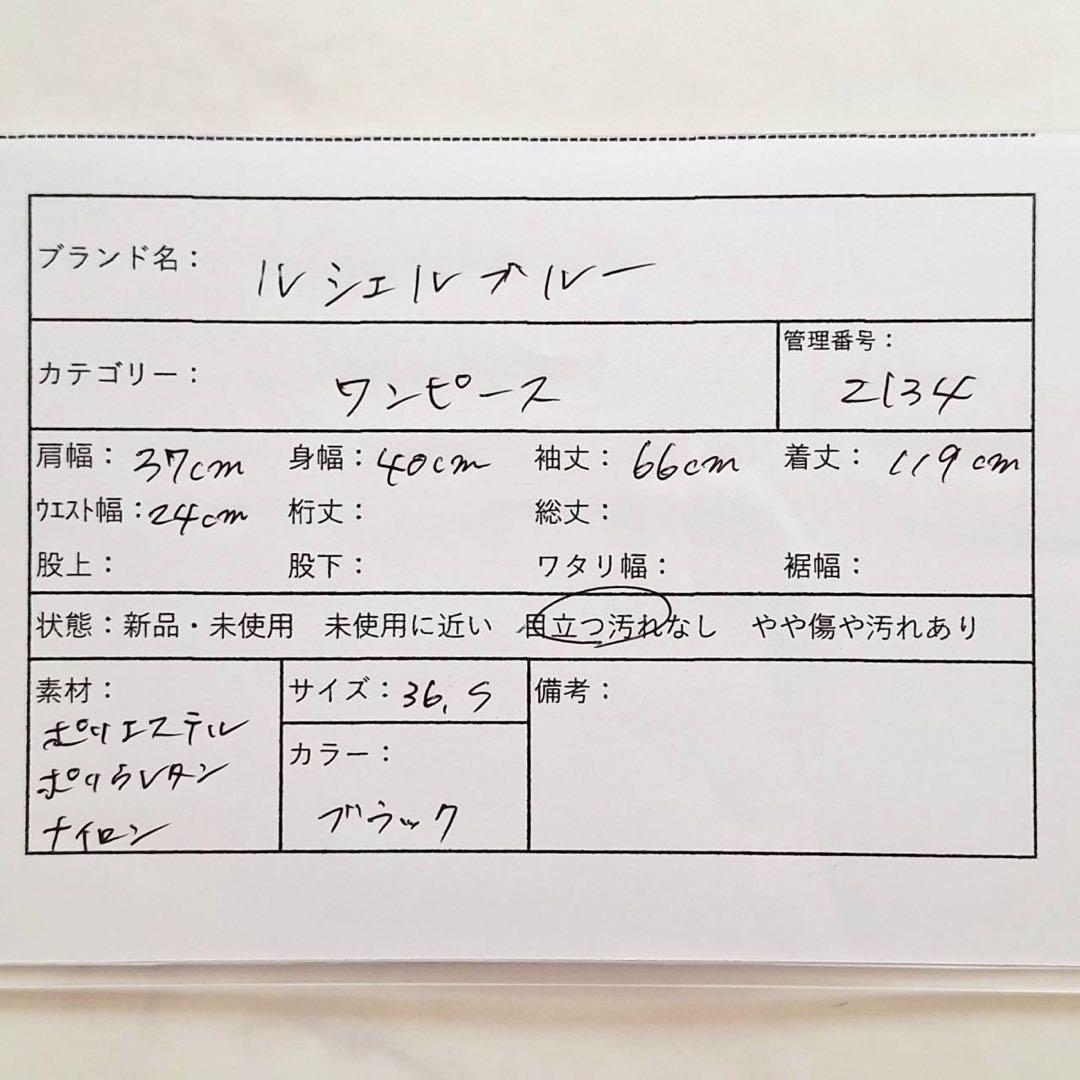 ブランド名： ルシェルブルー
カテゴリー： ワンピース
管理番号：
2134
肩幅：37cm 身幅：40cm 袖丈：66cm 着丈：119cm
ウエスト幅：24cm 裄丈： 総丈：
股上： 股下： ワタリ幅： 裾幅：
状態：新品・未使用 未使用に近い 目立つ汚れなし やや傷や汚れあり
素材：
ポリエステル
ポリウレタン
ナイロン
サイズ：36, S
カラー：
ブラック
備考：